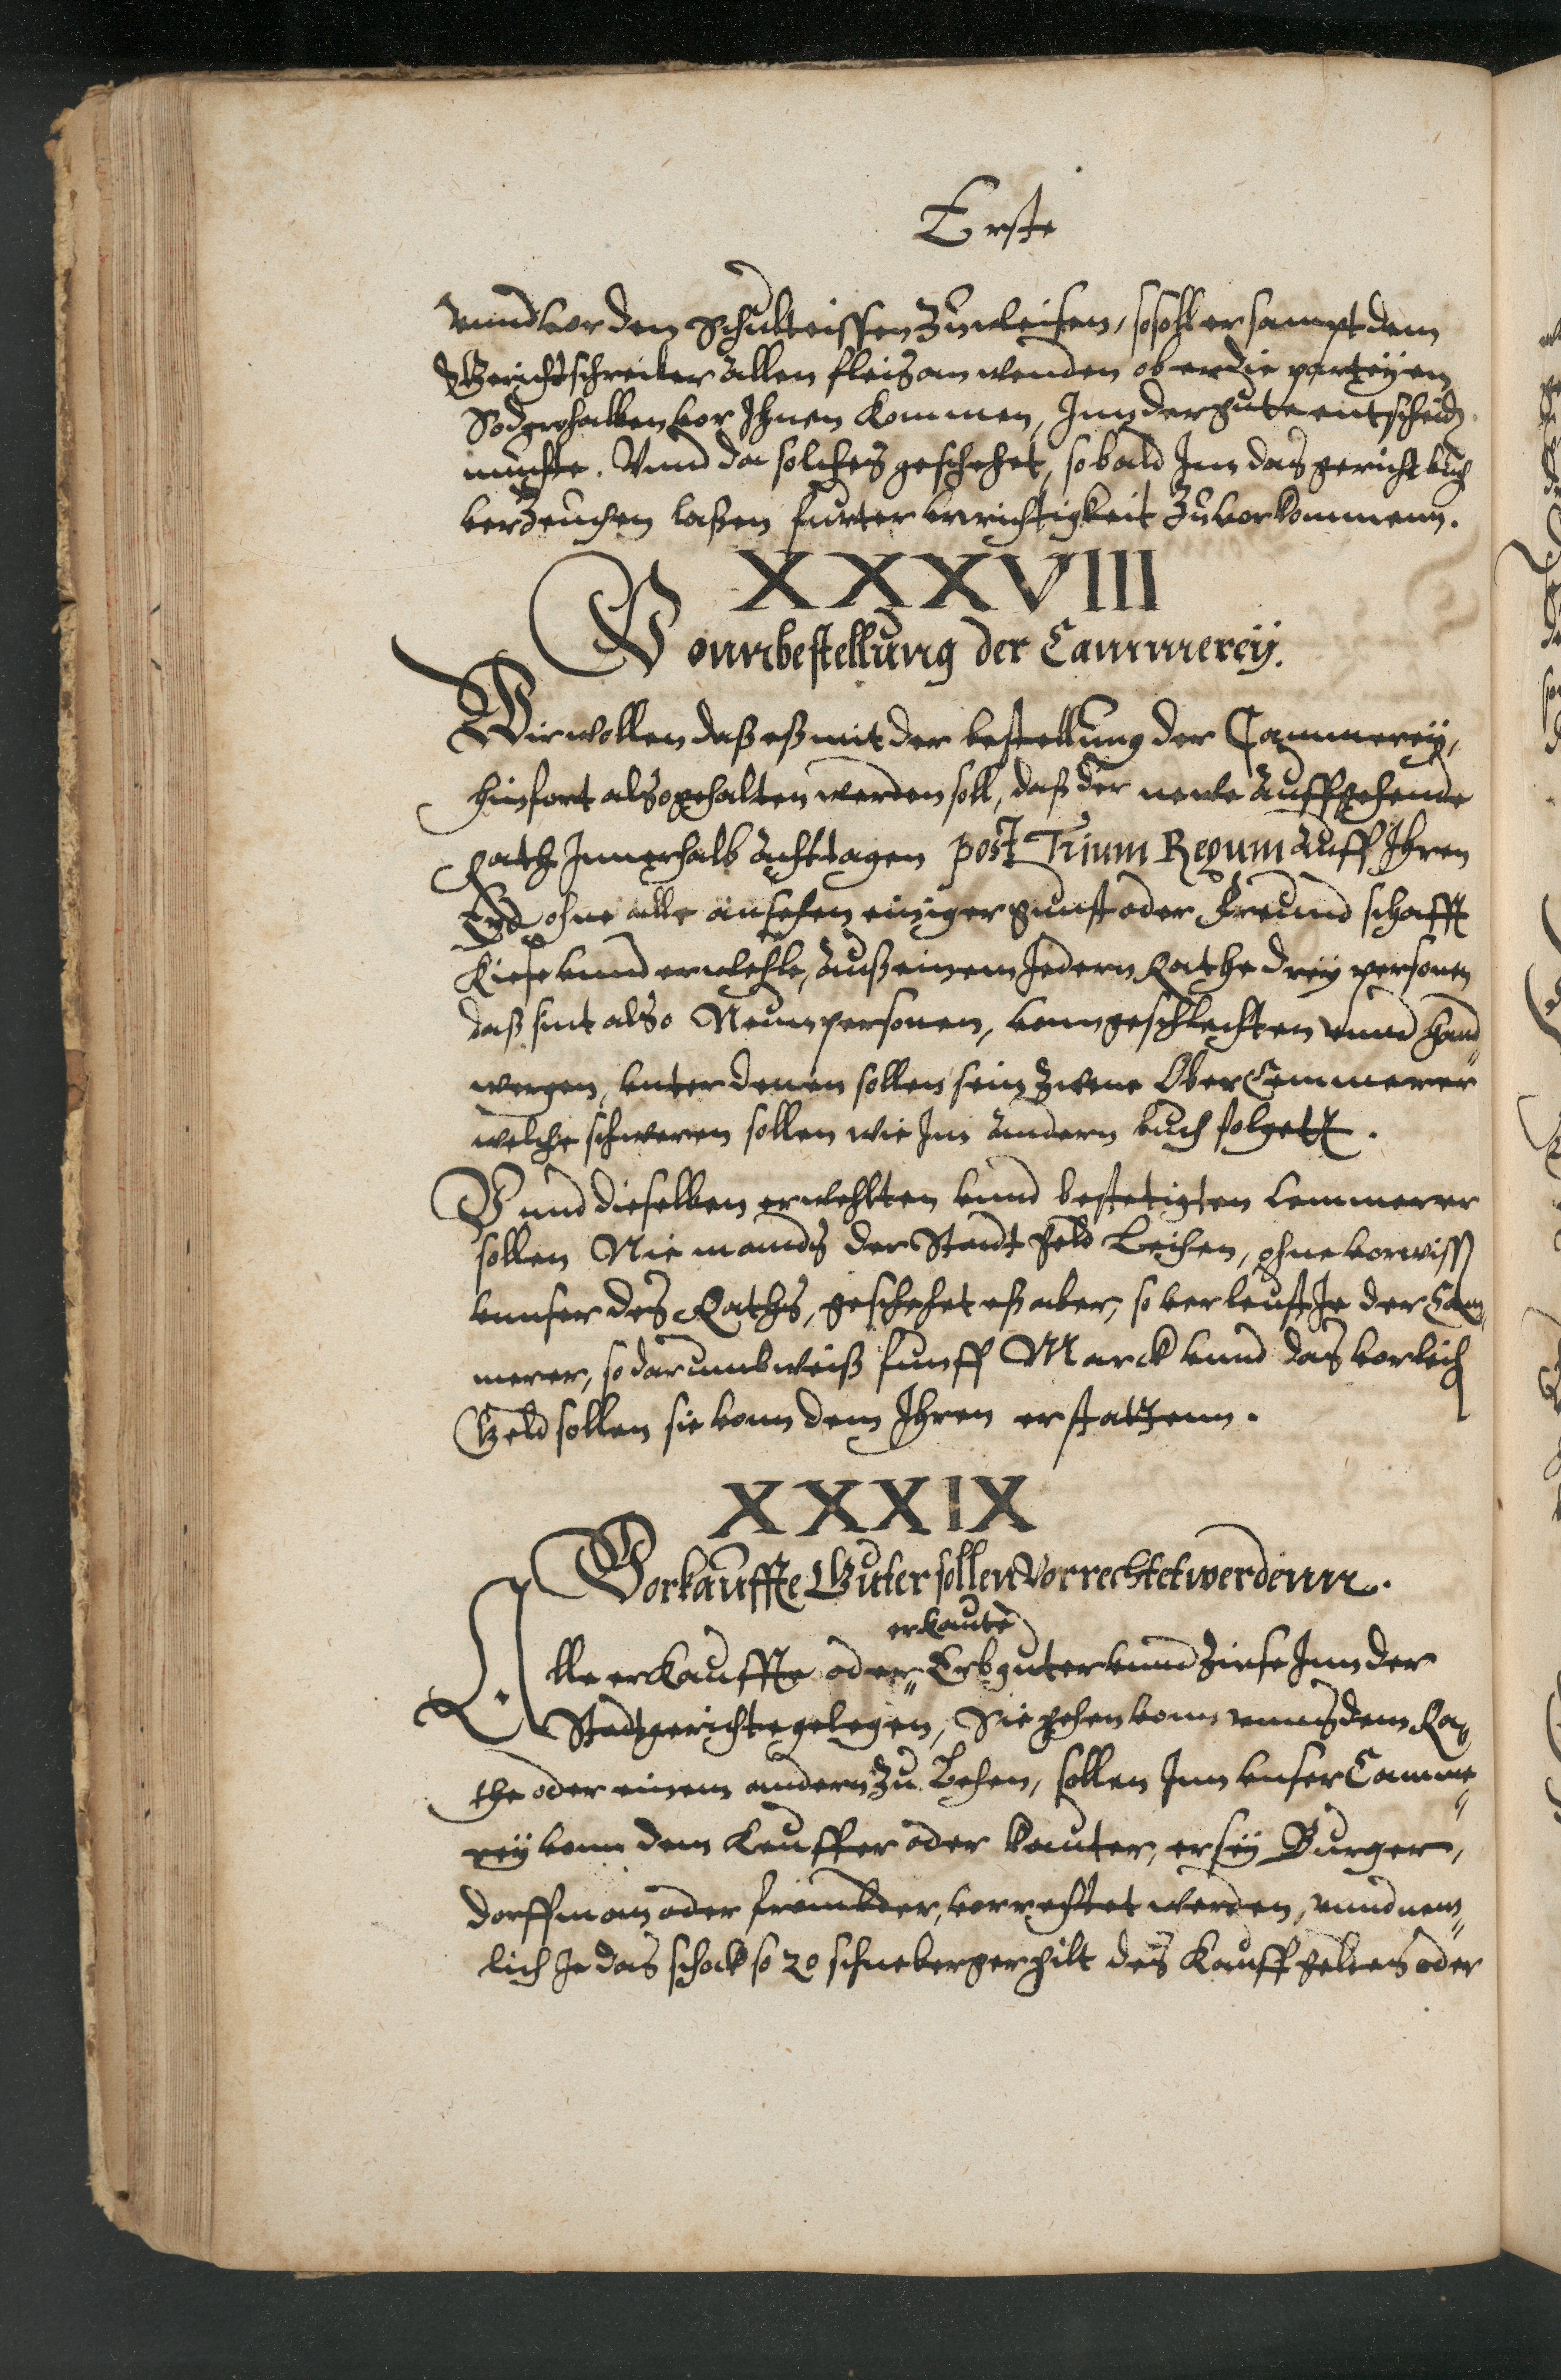 Erste
vnnd vor den Schulteissen zuweisen, so soll er sampt dem
Gerichtschreiber allen fleis anwenden ob er die parteyen
So derohalben vor Ihnen kommen, Inn der gute entscheiden
muchte. Vnnd da solches geschehet, so bald Inn das gericht buch
verzeuchen laßen furter vnrichtigkeit zuvorkommenn.
XXXVIII
Vonn bestellung der Cammerey.
Wir wollen daß eß mit der bestellung der Cammerey,
hinfort also gehalten werden soll, daß der newe auffgehende
Rath Innerhalb acht tagen post Trium Regum auff Ihren
Eyd ohne alle ansehen einiger gunst oder Freundschafft
Kiese vnnd erwehle, auß einem Iedern Rathe drey personen
daß sint also Neun personen, vonn geschlechten vnnd hand„
wergen, vnter denen sollen sein zwene Ober Cemmerer
welche schweren sollen wie Im andern buch folgett.
Vnnd dieselben erwehlten vnnd bestetigten Cemmerer
sollen Niemands der Stadt geld Leihen, ohne vorwiss
vnnser des Raths, geschehet eß aber, so verleust Ie der Cam„
merer, so darumb weiß funff Marck vnnd das vorleich
Geld sollen sie vonn dem Ihren erstattenn.
XXXIX
Vorkauffte Guter sollen Vorrechtet werdenn.
erkaute
Alle erkauffte oder„ Erbguter vnnd Zinse Inn der
Stadtgerichte gelegen, Sie gehen vonn vnns dem Ra„
the oder einem andern zu Lehen, sollen Inn vnser Camme„
rey vonn dem Keuffer oder kauter, er sey Burger,
dorffman oder frembder, vorrechtet werden, vnnd nem„
lich Ie das schock so 20 schneberger gilt des Kauffgeldes oder